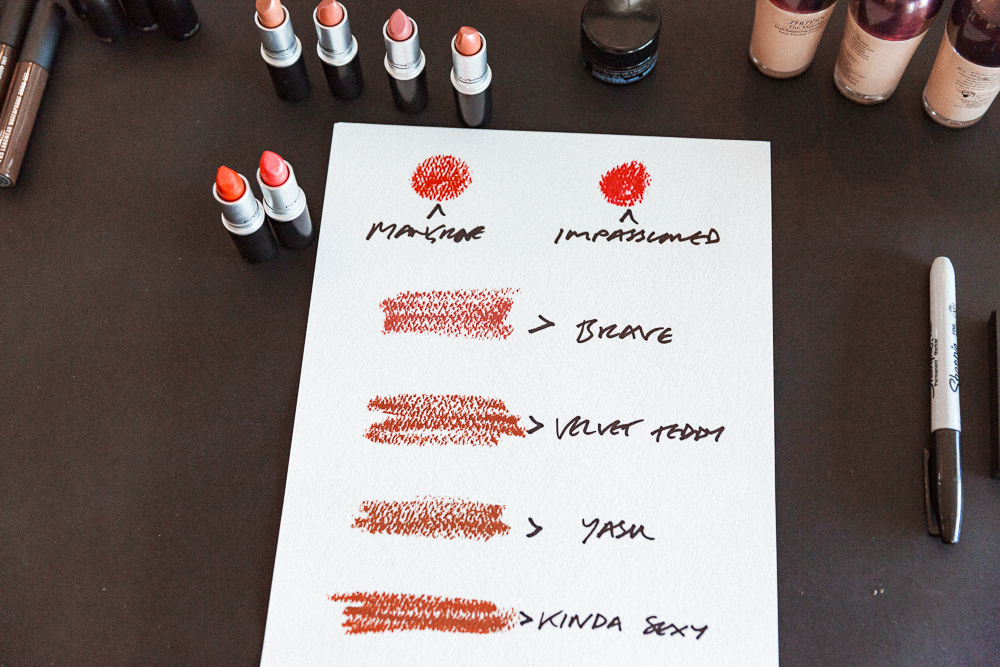 SHISEIDO
MANGROVE
IMPASSIONED
> BRAVE
> VELVET TEDDY
> YASH
> KINDA SEXY
Sharpie